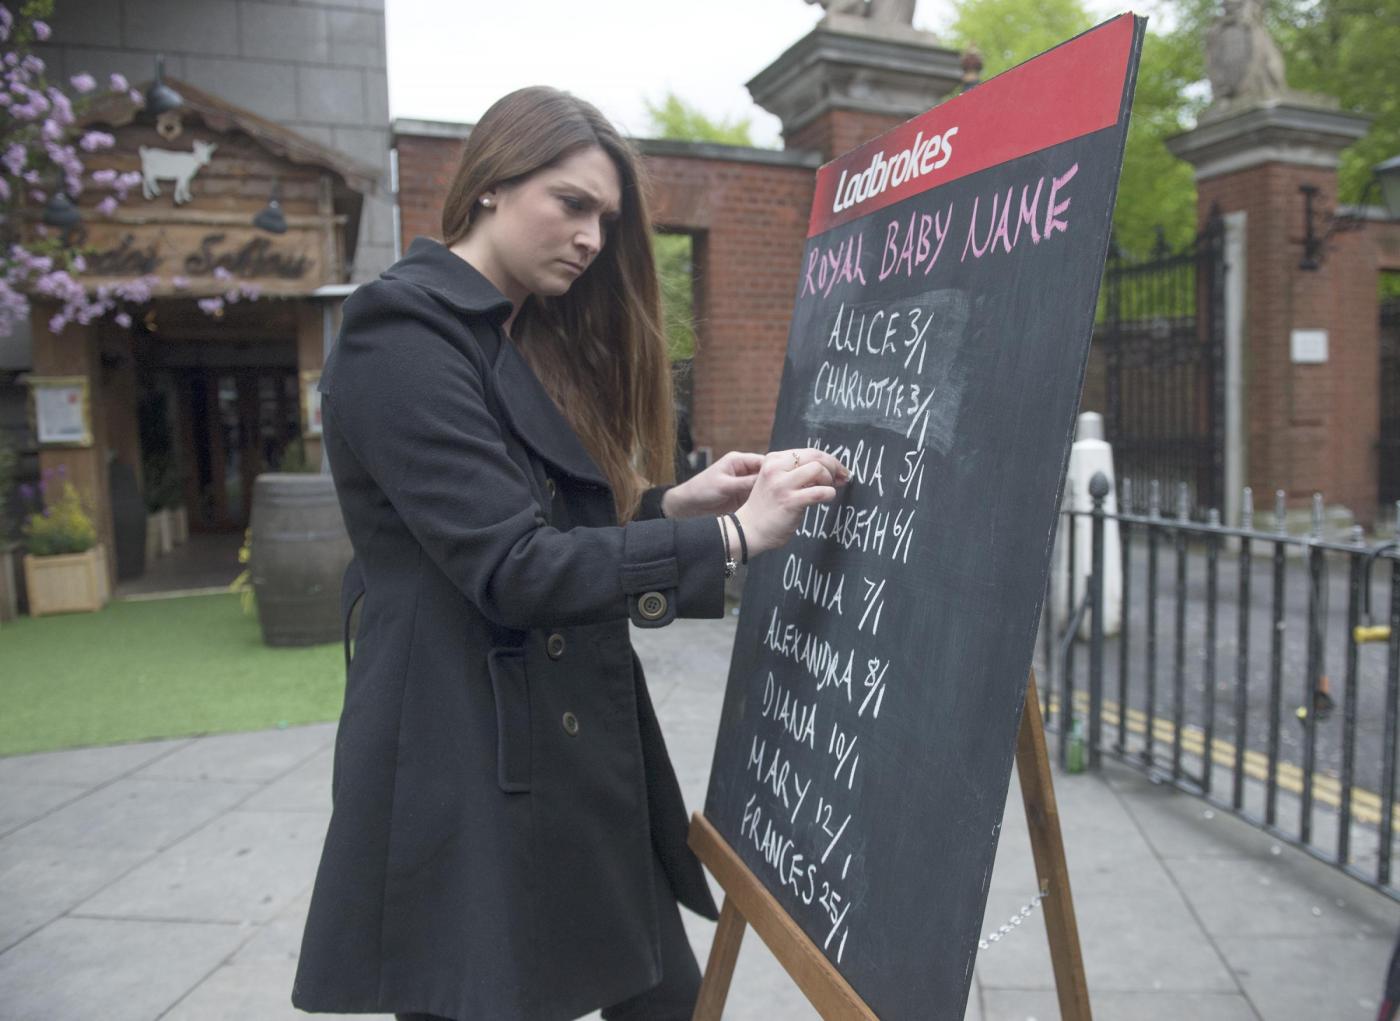 Ladbrokes
ROYAL BABY NAME
ALICE 3/1
CHARLOTTE 3/1
VICTORIA 5/1
ELIZABETH 6/1
OLIVIA 7/1
ALEXANDRA 8/1
DIANA 10/1
MARY 12/1
FRANCES 25/1